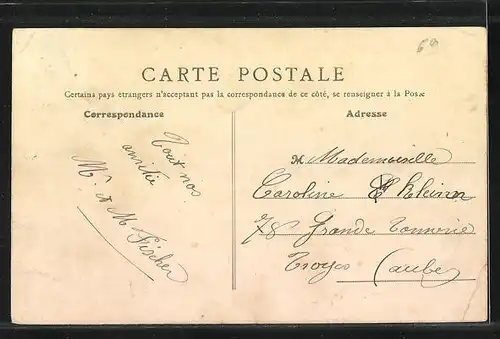 60
CARTE POSTALE
Certains pays étrangers n'acceptant pas la correspondance de ce côté, se renseigner à la Poste
Correspondance
Adresse
Tout nos
amitie
Mr et M Fischer
M Mademoiselle
Caroline Klein
78 Grande Tannerie
Troyes (aube)